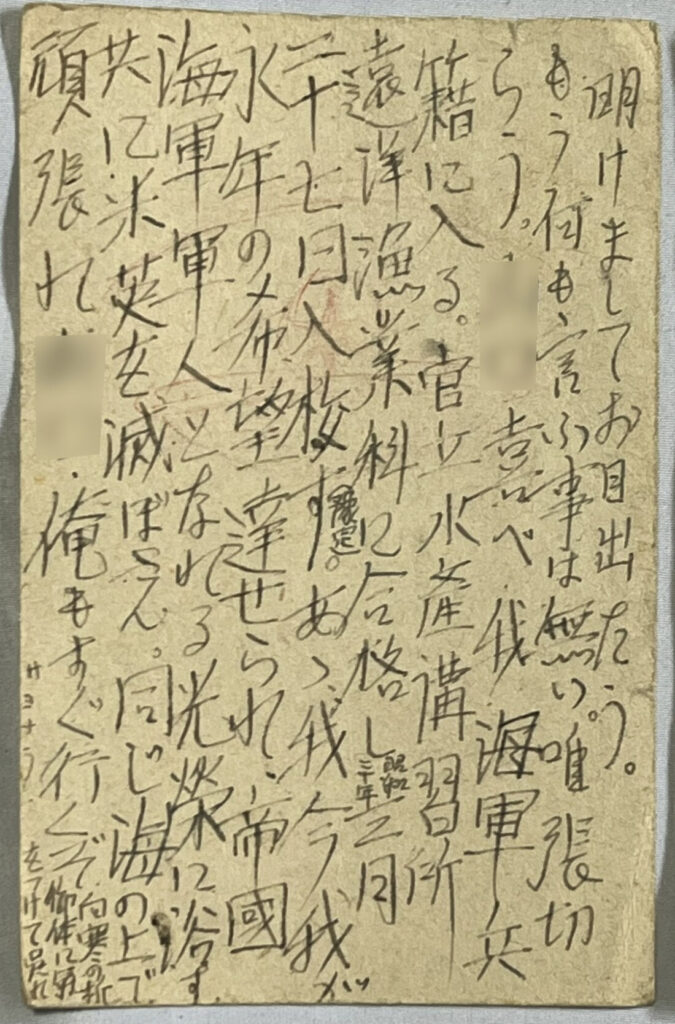 明けましてお目出たう。
もう何も言ふ事は無い。唯張切
らう。喜べ 我 海軍兵
籍に入る。官立水産講習所
遠洋漁業科に合格し昭和二十年三月
二十七日入校す(豫定)。あゝ我今我が
永年の希望達せられ、帝國
海軍軍人となれる光栄に浴す
共に米英を滅ぼさん。同じ海の上で
頑張れ 俺もすぐ行くぞ
向寒の折
御体に気
をつけて呉れ
サヨナラ